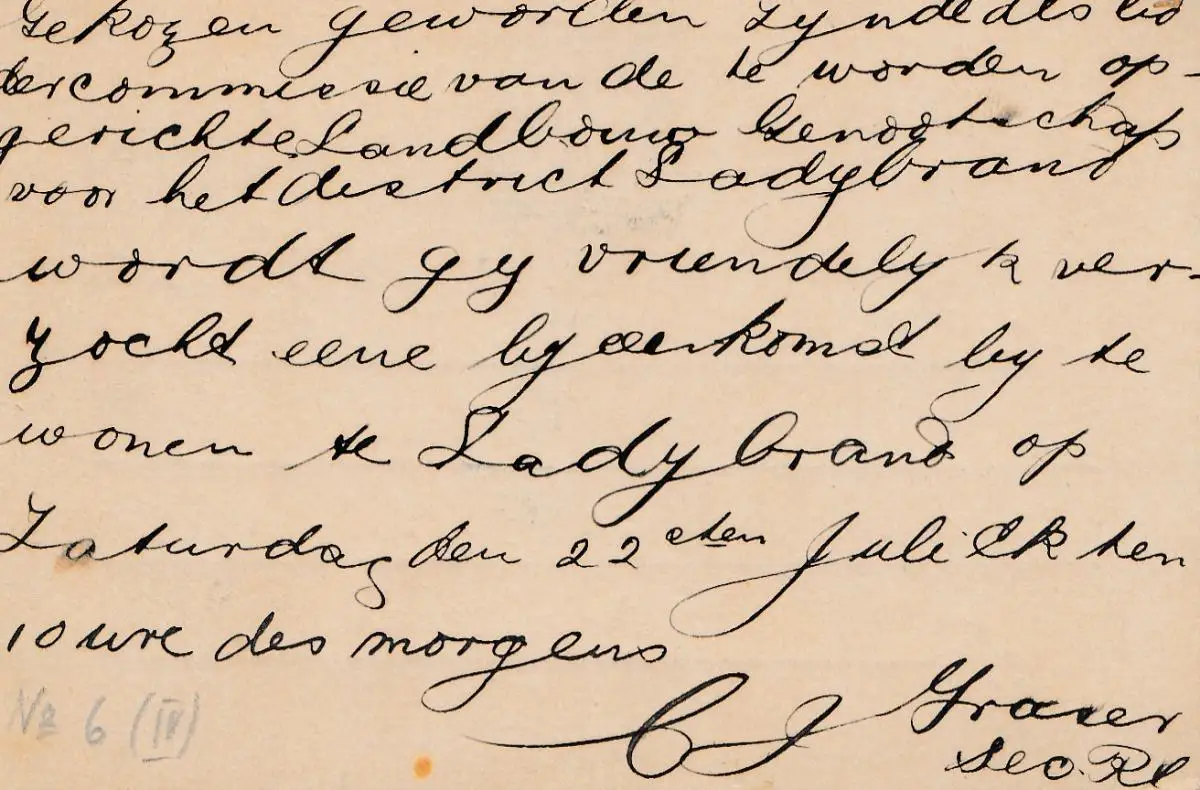 Gekozen geworden zynde als lid
der commissie van de te worden op-
gerichte Landbouw Genootschap
voor het district Ladybrand
wordt gy vriendelyk ver-
zocht eene byeenkomst by te
wonen te Ladybrand op
Zaturdag den 22sten Juli Elk ten
10 ure des morgens
C J Fraser
Sec.
No 6 (IV)